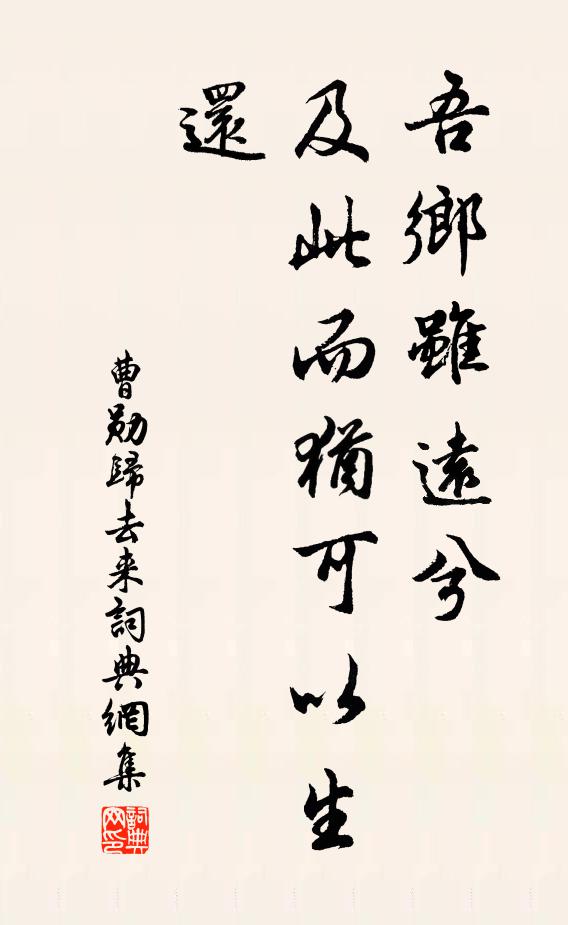 吾鄉雖遠兮
及此而猶可以生
還
曹勛歸去来詞典網集
詞典网印